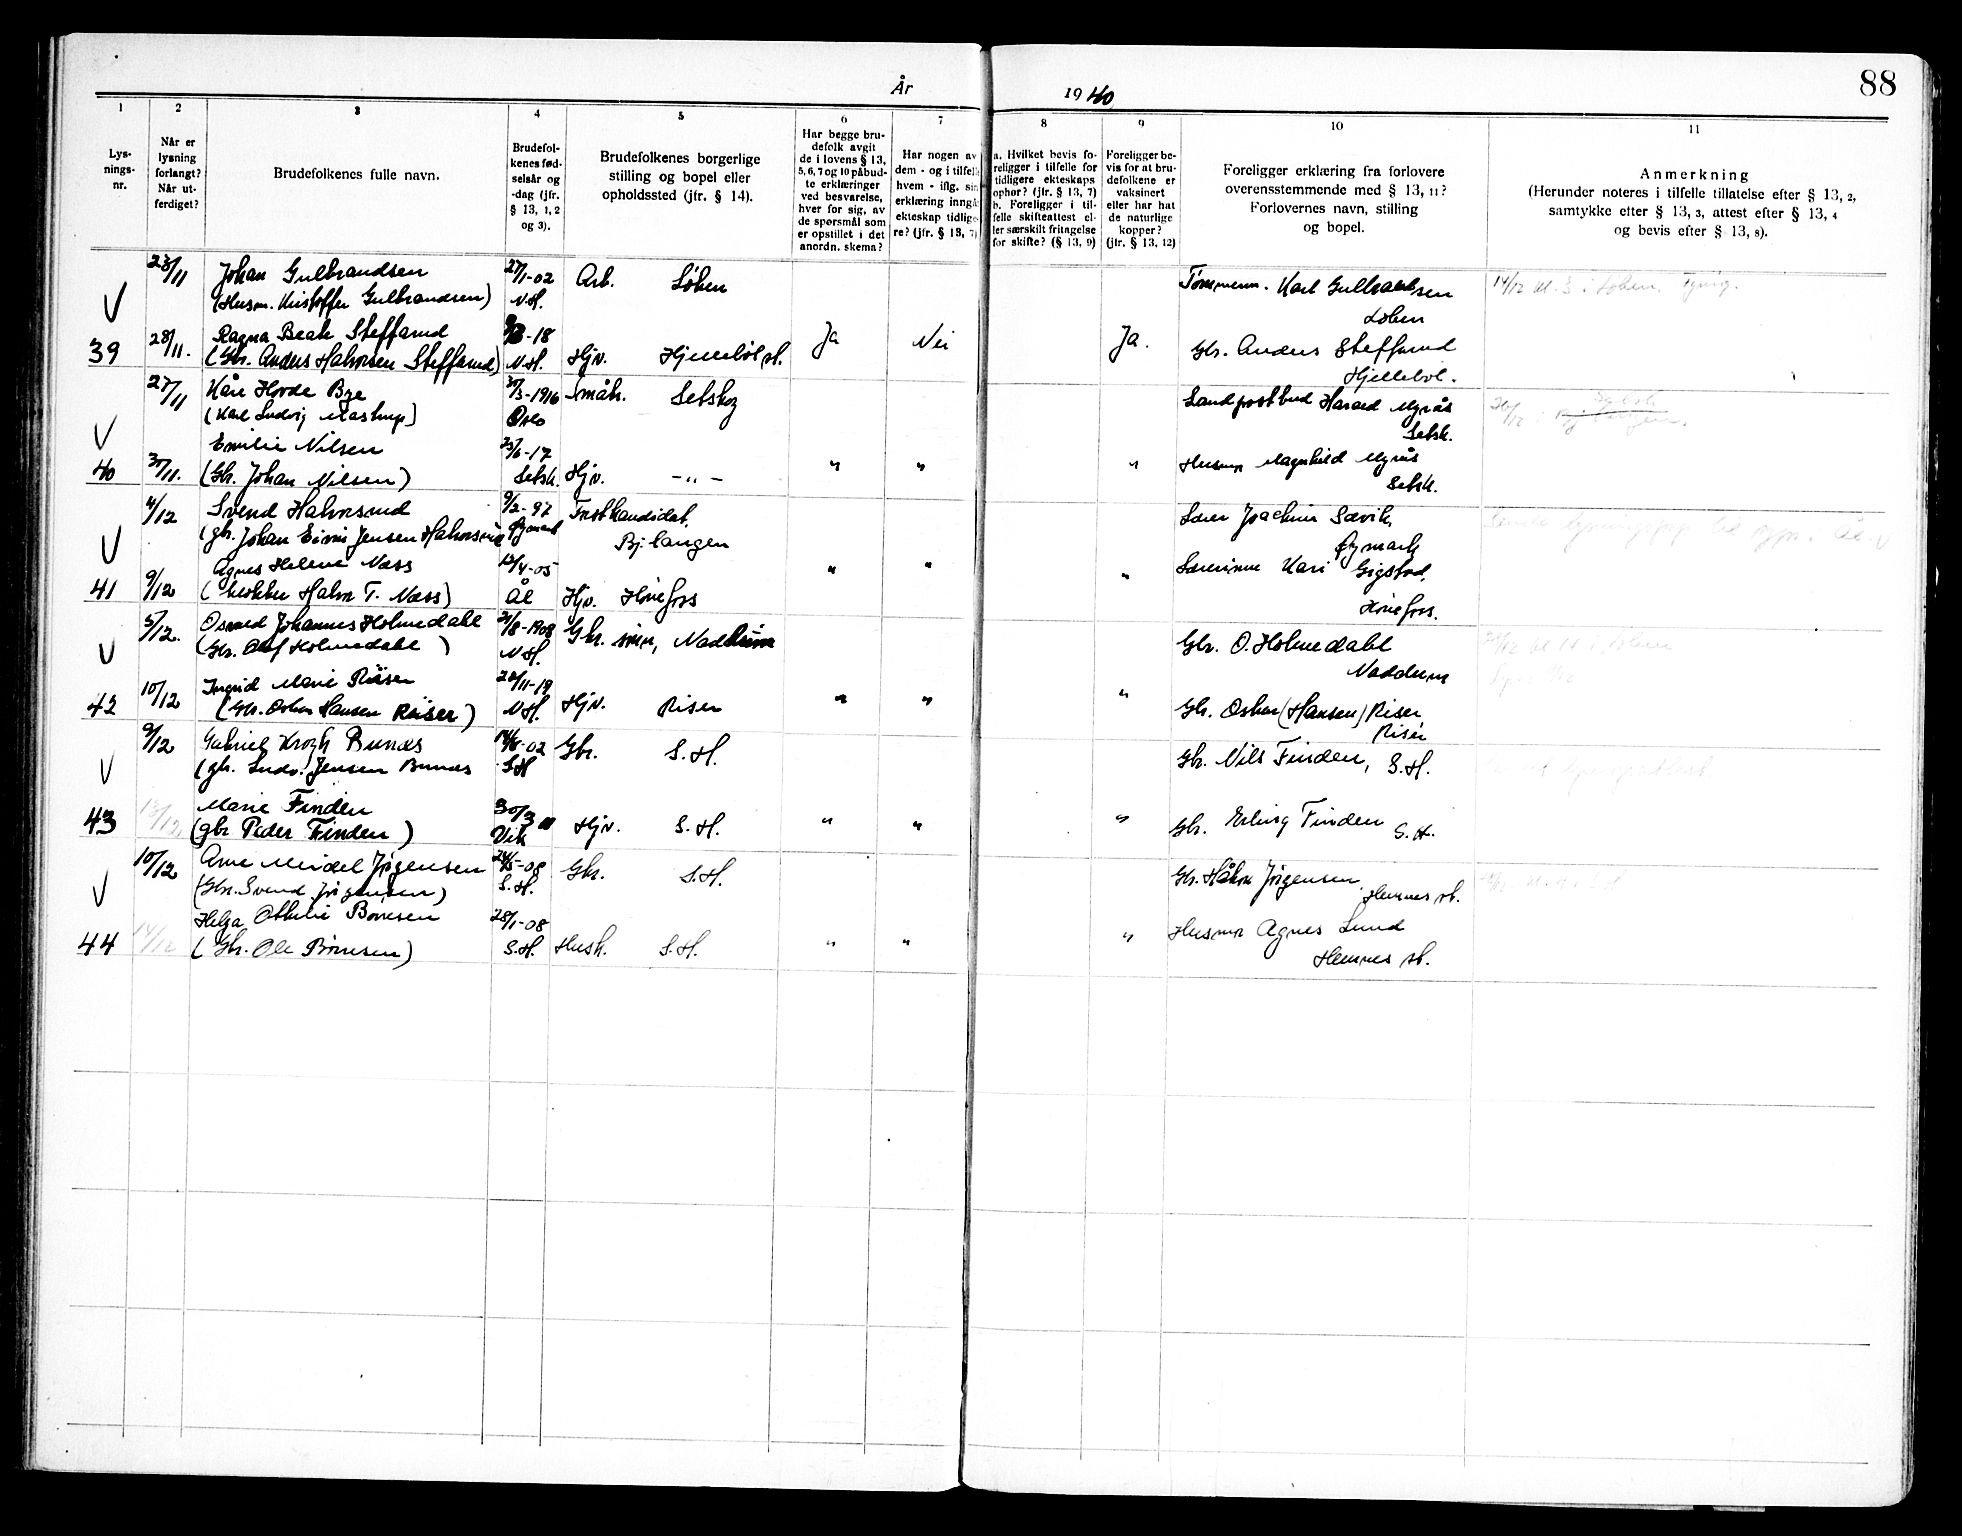 88
År 1940
1 2 3 4 5 6 7 8 9 10 11
Lys-
nings-
nr.
Når er
lysning
forlangt?
Når ut-
ferdiget?
Brudefolkenes fulle navn.
Brudefol-
kenes fød-
selsår og
-dag (jfr.
§ 13, 1, 2
og 3).
Brudefolkenes borgerlige
stilling og bopel eller
opholdssted (jfr. § 14).
Har begge bru-
defolk avgit
de i lovens § 13,
5, 6, 7 og 10 påbud-
te erklæringer
ved besvarelse,
hver for sig, av
de spørsmål som
er opstillet i det
anordn. skema?
Har nogen av
dem - og i tilfelle
hvem - iflg. sin
erklæring inngå
ekteskap tidlige-
re? (jfr. § 13, 7)
a. Hvilket bevis fo-
religger i tilfelle for
tidligere ekteskaps
ophør? (jfr. § 13, 7)
b. Foreligger i til-
felle skifteattest el-
ler særskilt fritagelse
for skifte? (§ 13, 9)
Foreligger be-
vis for at bru-
defolkene er
vaksinert
eller har hat
de naturlige
kopper?
(jfr. § 13, 12)
Foreligger erklæring fra forlovere
overensstemmende med § 13, 11?
Forlovernes navn, stilling
og bopel.
Anmerkning
(Herunder noteres i tilfelle tillatelse efter § 13, 2,
samtykke efter § 13, 3, attest efter § 13, 4
og bevis efter § 13, 8).
23/11 Johan Gulbrandsen 27/1-02 Arb. Løken Karl Gulbrandsen 14/12 kl. 3 i Løken
(Husm. Kristoffer Gulbrandsen) N.H. Løken
28/11. Ragna Beate Steffarud -18 Ja Nei Ja. Gbr. Anders Steffarud
39 (Gbr. Anders Halvorsen Steffarud) N.H. Hjv. Hjellebøl st. Hjellebøl.
27/11 Kåre Hovde Bye 30/3-1916 Småbr. Setskog Landpostbud Harald Myrås
(Karl Ludvig Mastrup) Oslo Setsk.
Emilie Nilsen 25/6-17
40 30/11. (Gbr. Johan Nilsen) Setsk. Hjv. -"- " " " Husmor Magnhild Myrås
Setsk.
4/12 Svend Halvorsrud 9/2-97 Lærer Joachim Sævik,
(gbr. Johan Jensen Halvorsrud Øymark Bj.langen Øymark
Agnes Helene Næss 12/4-05 " " " Lærerinne Kari Gigstad,
41 9/12 (Halvor T. Næss) Ål Hjv. Hønefoss Hønefoss.
5/12. Johannes Holmedahl 31/8-1908 Gbr. sønn, Naddum Gbr. O. Holmedahl
(Gbr. Olaf Holmedahl) N.H. Naddum
10/12 Ingrid Marie Riser 20/11-19
42 (Gbr. Oskar Hansen Riser) N.H. Hjv. Riser " " " Gbr. Oskar (Hansen) Riser
Riser
9/12 Gabriel Krogh Bunæs 14/8-02 Gbr. S.H. Gbr. Nils Finden, S.H.
(gbr. Ludv. Jensen Bunæs S.H
Marie Finden 30/3
43 13/12 (gbr Peder Finden) Vik Hjv. S.H. " " " Gbr. Erling Finden S.H.
10/12 Arne Meidel Jørgensen -08 Gbr. S.H. Gbr. Håkon Jørgensen
(Gbr. Svend Jørgensen) S.H. Hemnes st.
Helga Othilie Børresen 28/1-08 Husmor Agnes Lund
44 14/12 (Gbr. Ole Børresen) S.H. Hush. S.H. " " " Hemnes st.